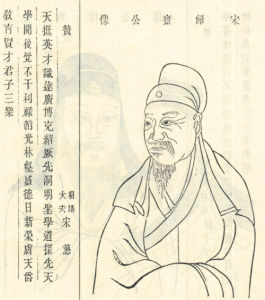 宋師齋公像
贊
朝請大夫宋
天挺英才識達廣博克紹厥先洞明聖學道探先天
學開後覺不干利祿韜光林壑盛德日新榮膺天爵
敎育賢才君子三樂